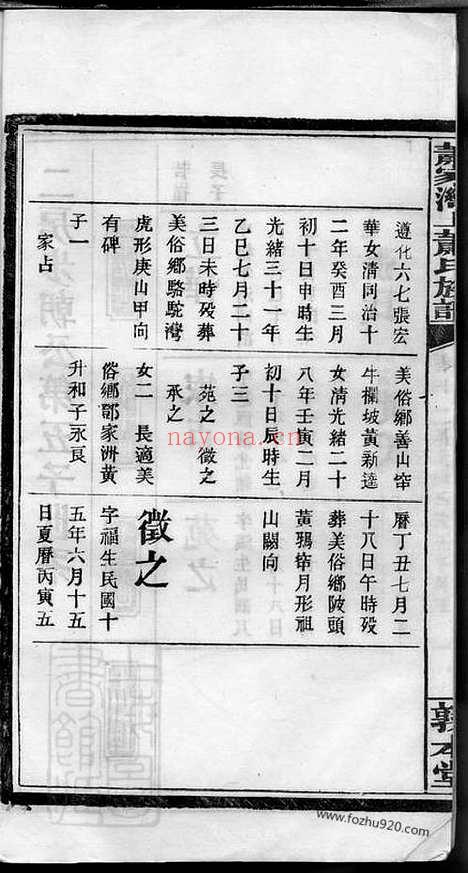 遵化六七張宏
華女清同治十
二年癸酉三月
初十日申時生
光緒三十一年
乙巳七月二十
三日未時殁葬
美俗鄉駱駝灣
虎形庚山甲向
有碑
子一
家占
美俗鄉善山窜
牛欄坡黃新達
女清光緒二十
八年壬寅二月
初十日辰時生
子三
苑之 徵之
承之
女二 長適美
俗鄉鄒家洲黃
升和子永良
曆丁丑七月二
十八日午時殁
葬美俗鄉陂頭
黃鴉窜月形祖
山闕向
徵之
字福生民國十
五年六月十五
日夏曆丙寅五
蕭氏族譜
敦本堂
nayona.cn
www.fozhu920.com